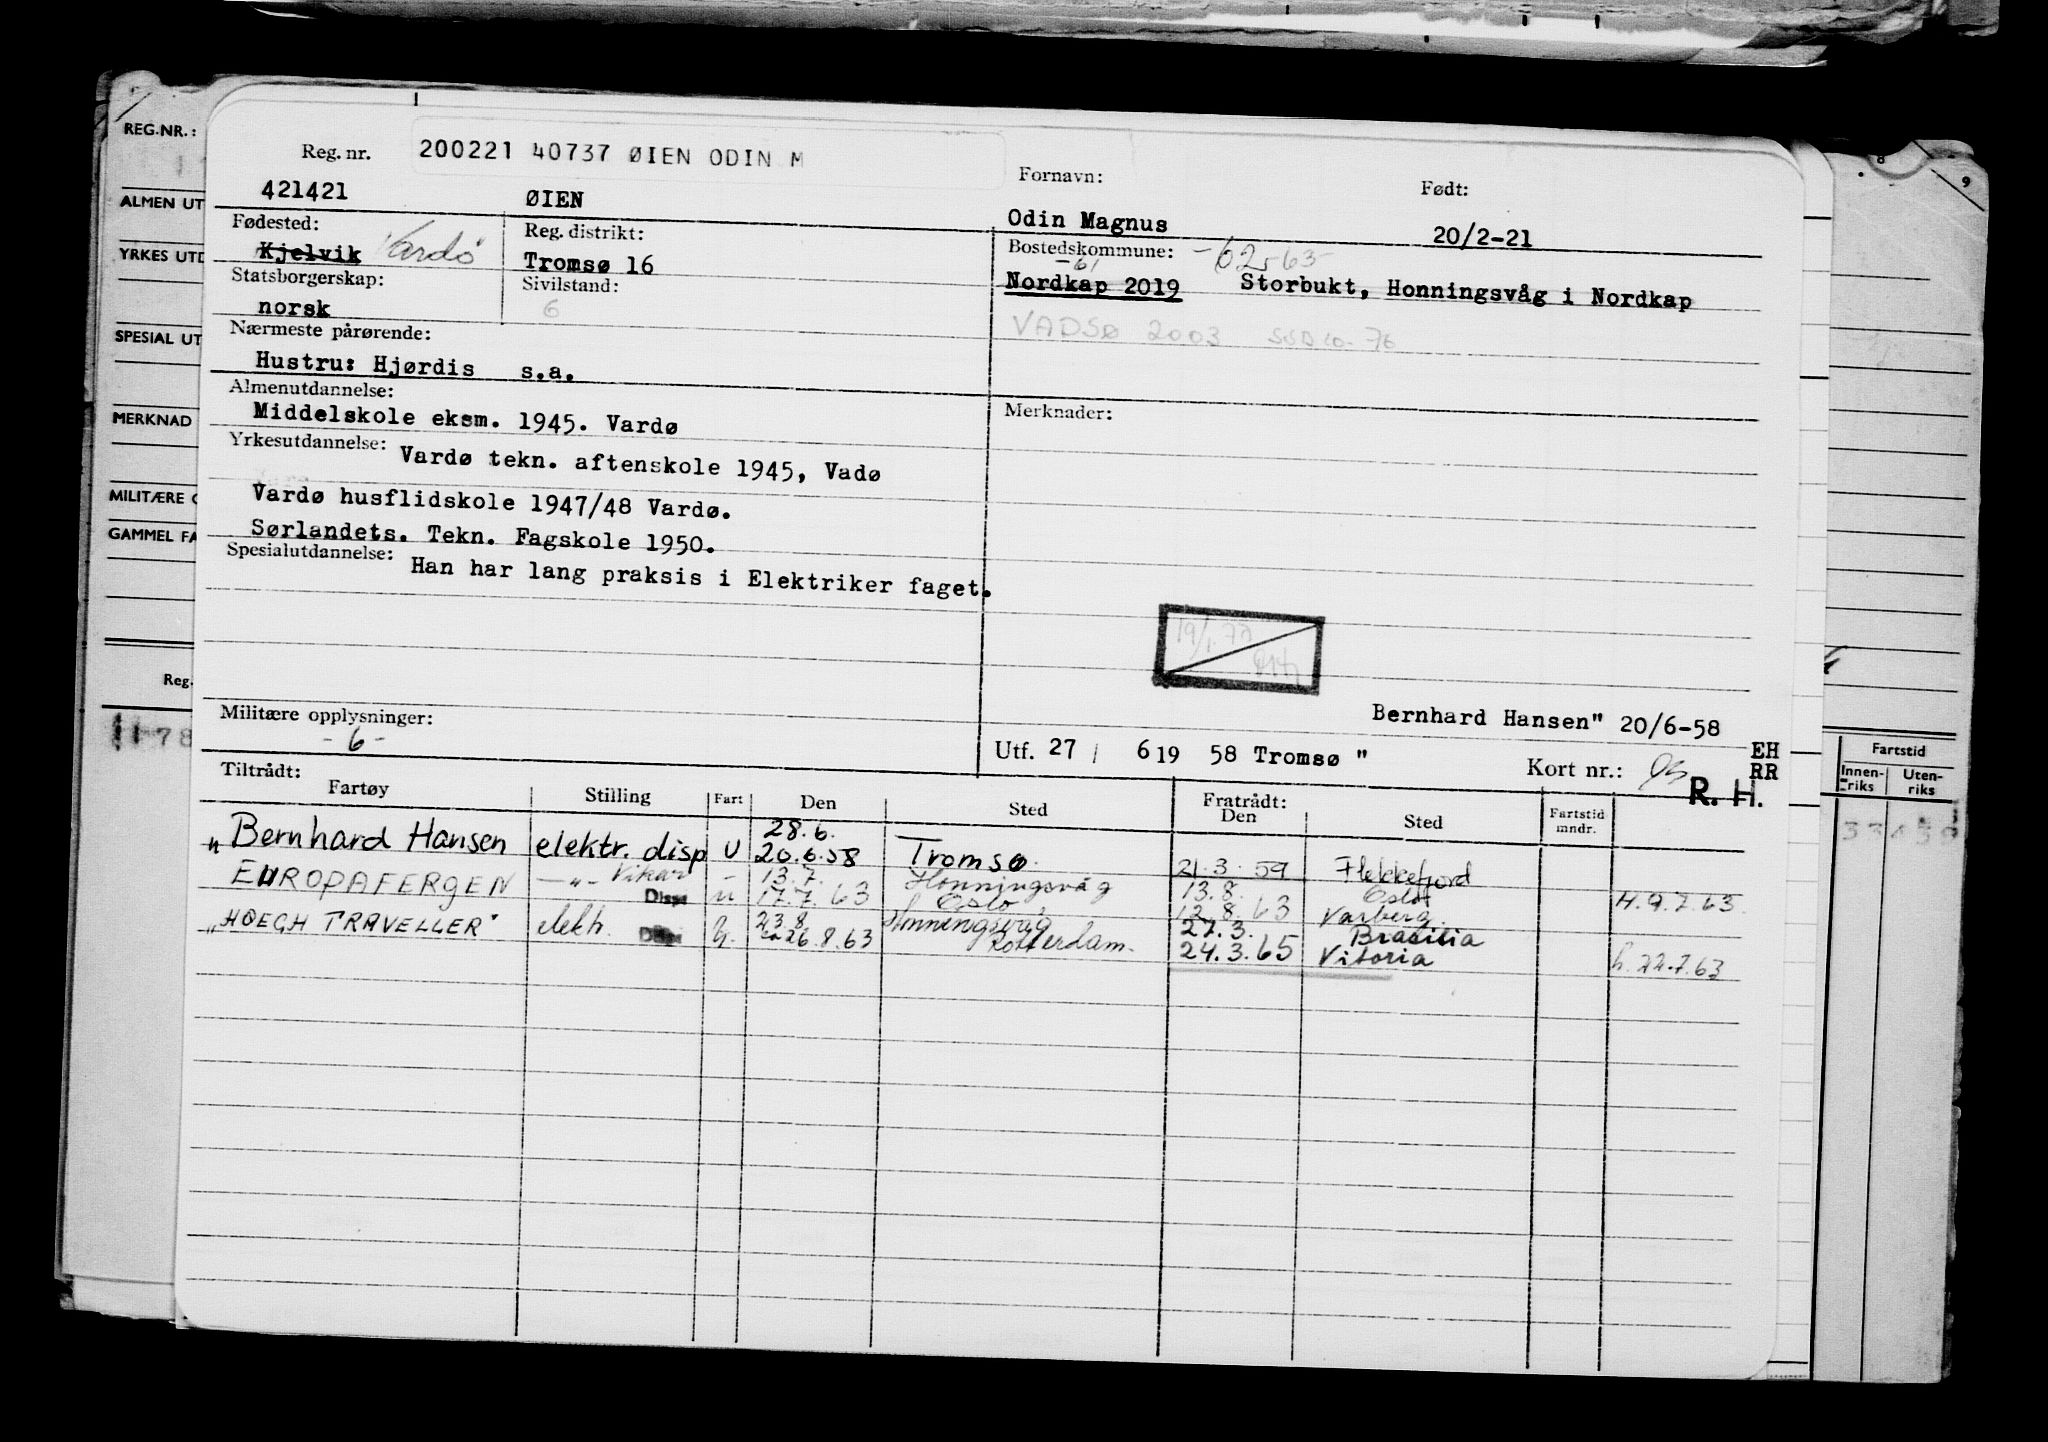 REG.NR.:
ALMEN UT
YRKES UTD
SPECIAL UT
MERKNAD
MILITÆRE
GAMMEL FA
Reg.
1178
8
9
Reg. nr. 200221 40737 ØIEN ODIN M
Fornavn: Født:
421421 ØIEN Odin Magnus 20/2-21
Fødested: Reg. distrikt: Bostedskommune: -62-63-
Kjelvik Vardø Tromsø 16 -61
Nordkap 2019 Storbukt, Honningsvåg i Nordkap
Statsborgerskap: Sivilstand:
norsk 6
VADSØ 2003 10-76
Nærmeste pårørende:
Hustru: Hjørdis s.a.
Almenutdannelse: Merknader:
Middelskole eksm. 1945. Vardø
Yrkesutdannelse: Vardø tekn. aftenskole 1945, Vadø
Vardø husflidskole 1947/48 Vardø.
Sørlandets. Tekn. Fagskole 1950.
Spesialutdannelse: Han har lang praksis i Elektriker faget.
19/1 77
Bernhard Hansen" 20/6-58
Militære opplysninger:
-6-
Utf. 27 / 6 19 58 Tromsø " Kort nr.:
EH
RR
R. H.
Tiltrådt: Fratrådt:
Fartøy Stilling Fart Den Sted Den Sted Fartstid mndr.
28.6.
"Bernhard Hansen elektr. disp U 20.6.58 Tromsø. 21.3.59 Flekkefjord
EUROPAFERGEN -"- Vikar - 13.7. Honningsvåg 13.8. Oslo
Disp u 17.7.63 Oslo 12.8.63 Varberg. H.9.7.63.
"HOEGH TRAVELLER" elektr. 23.8 Honningsvåg 27.3. Brasilia
26.8.63 Rotterdam. 24.3.65 Vitoria h.22.7.63
Fartstid
Innen-riks Uten-riks